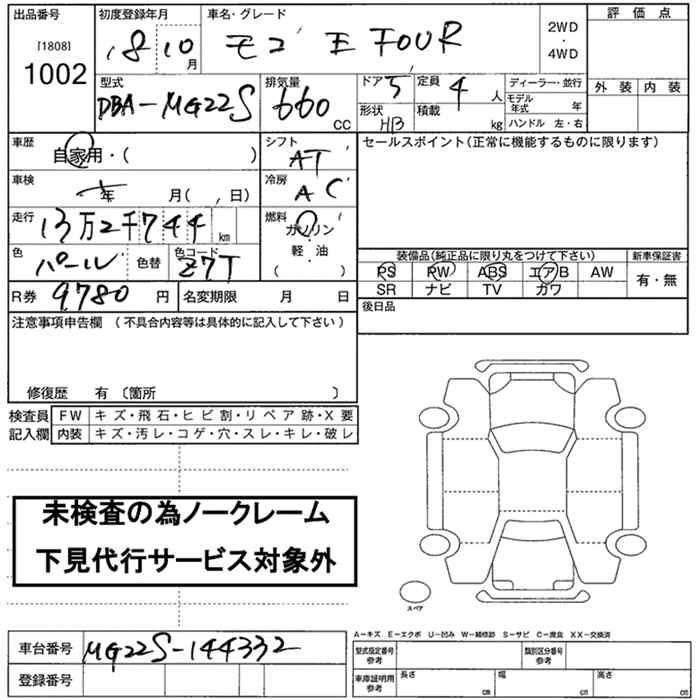 出品番号 初度登録年月 車名・グレード 評価点
[1808]
1002
18 10 月 モコ E FOUR 2WD・4WD
外装 内装
型式 排気量 ドア 5 定員 4 人 ディーラー・並行
DBA-MG22S 660 CC モデル年式 年
形状 HB 積載 kg ハンドル 左・右
車歴 自家用・( ) シフト AT セールスポイント(正常に機能するものに限ります)
車検 年 月( 、日) 冷房 AC
走行 13万2千744 km 燃料 ガソリン
軽・油
( )
色 パール 色替 色コード Z7T
装備品(純正品に限り丸をつけて下さい) 新車保証書
PS PW ABS エアB AW 有・無
SR ナビ TV カワ
R券 9,780 円 名変期限 月 日 後日品
注意事項申告欄 (不具合内容等は具体的に記入して下さい)
修復歴 有 〔箇所 〕
検査員記入欄 FW キズ・飛石・ヒビ割・リペア跡・X要
内装 キズ・汚レ・コゲ・穴・スレ・キレ・破レ
未検査の為ノークレーム
下見代行サービス対象外
スペア
A-キズ E-エクボ U-凹み W-補修跡 S-サビ C-腐食 XX-交換済
車台番号 MG22S-144332
型式指定番号参考 類別区分番号参考
登録番号
車庫証明用参考 長さ cm 幅 cm 高さ cm